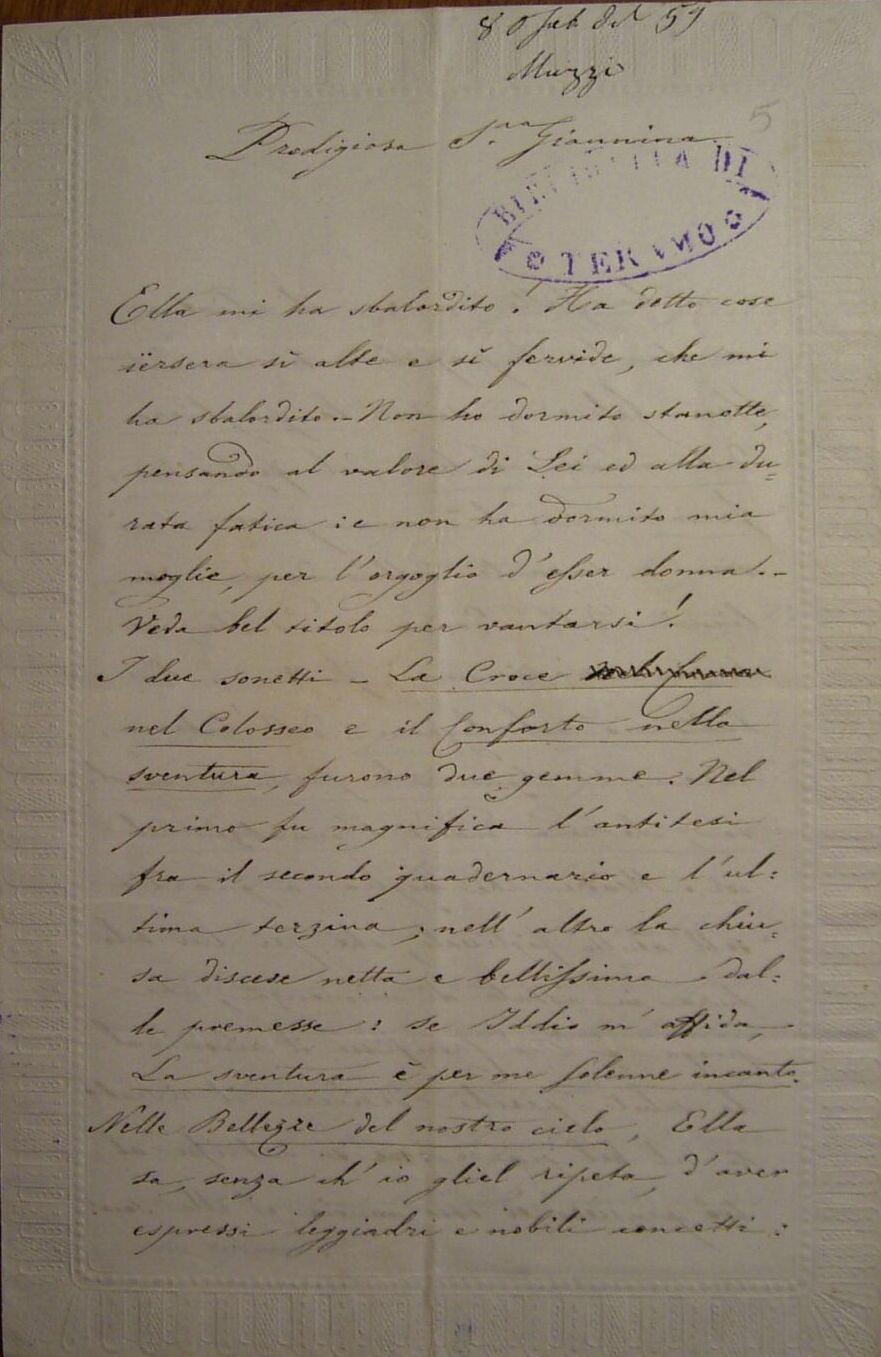 8 Feb del 59
Muzzi
5
Prodigiosa S.ra Giannina
BIBLIOTECA DI
TERAMO
Ella mi ha sbalordito! Ha detto cose
jersera sì alte e sì fervide, che mi
ha sbalordito. – Non ho dormito stanotte,
pensando al valore di Lei ed alla du=
rata fatica: e non ha dormito mia
moglie, per l'orgoglio d'esser donna. –
Veda bel titolo per vantarsi!
I due sonetti – La Croce
nel Colosseo e il Conforto nella
sventura, furono due gemme. Nel
primo fu magnifica l'antitesi
fra il secondo quadernario e l'ul=
tima terzina; nell'altro la chiu=
sa discese netta e bellissima dal=
le premesse: se Iddio m'affida,
La sventura è per me solenne incanto.
Nelle Bellezze del nostro cielo, Ella
sa, senza ch'io gliel ripeta, d'aver
espressi leggiadri e nobili concetti: